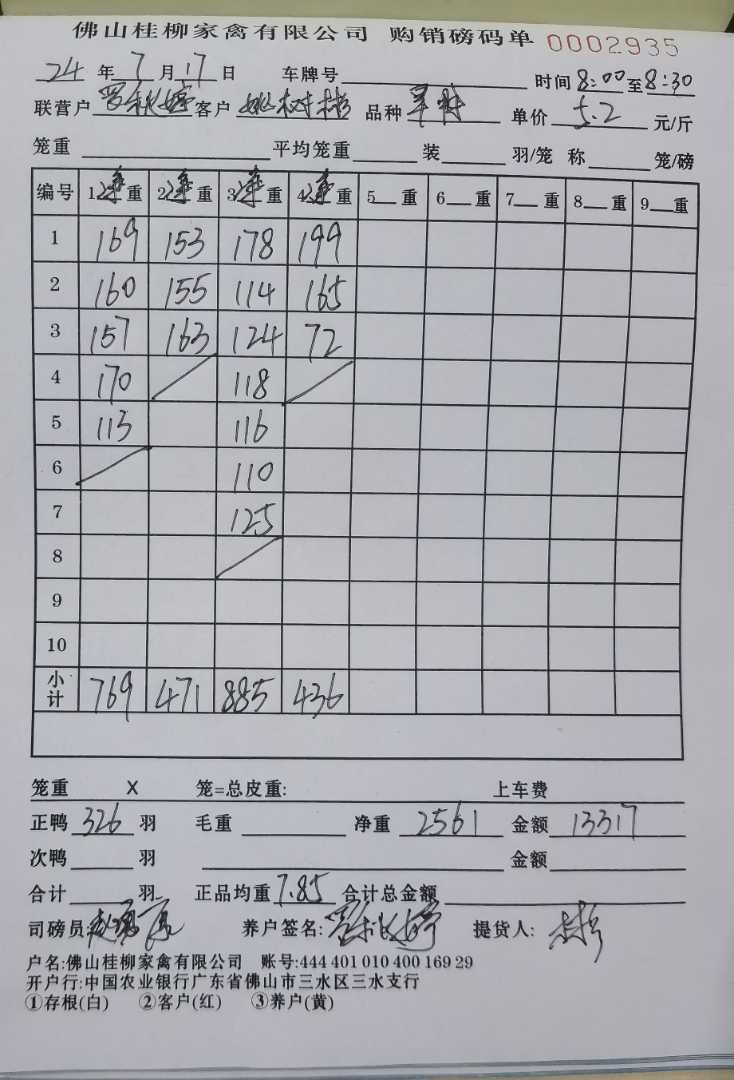 佛山桂柳家禽有限公司 购销磅码单 0002935
24 年 7 月 17 日 车牌号 时间 8:00 至 8:30
联营户 客户 姚树彬 品种 单价 5.2 元/斤
笼重 平均笼重 装 羽/笼 称 笼/磅
编号 1 净 重 2 净 重 3 净 重 4 净 重 5 重 6 重 7 重 8 重 9 重
1 169 153 178 199
2 160 155 114 165
3 157 163 124 72
4 170 118
5 113 116
6 110
7 125
8
9
10
小计 769 471 885 436
笼重 X 笼=总皮重: 上车费
正鸭 326 羽 毛重 净重 2561 金额 13317
次鸭 羽 金额
合计 羽 正品均重 7.85 合计总金额
司磅员: 养户签名: 提货人:
户名:佛山桂柳家禽有限公司 账号:444 401 010 400 169 29
开户行:中国农业银行广东省佛山市三水区三水支行
①存根(白) ②客户(红) ③养户(黄)